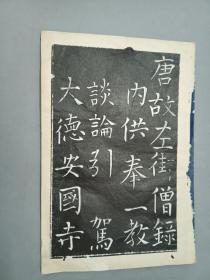 唐故左街僧録
内供奉三教
談論引駕
大德安國寺